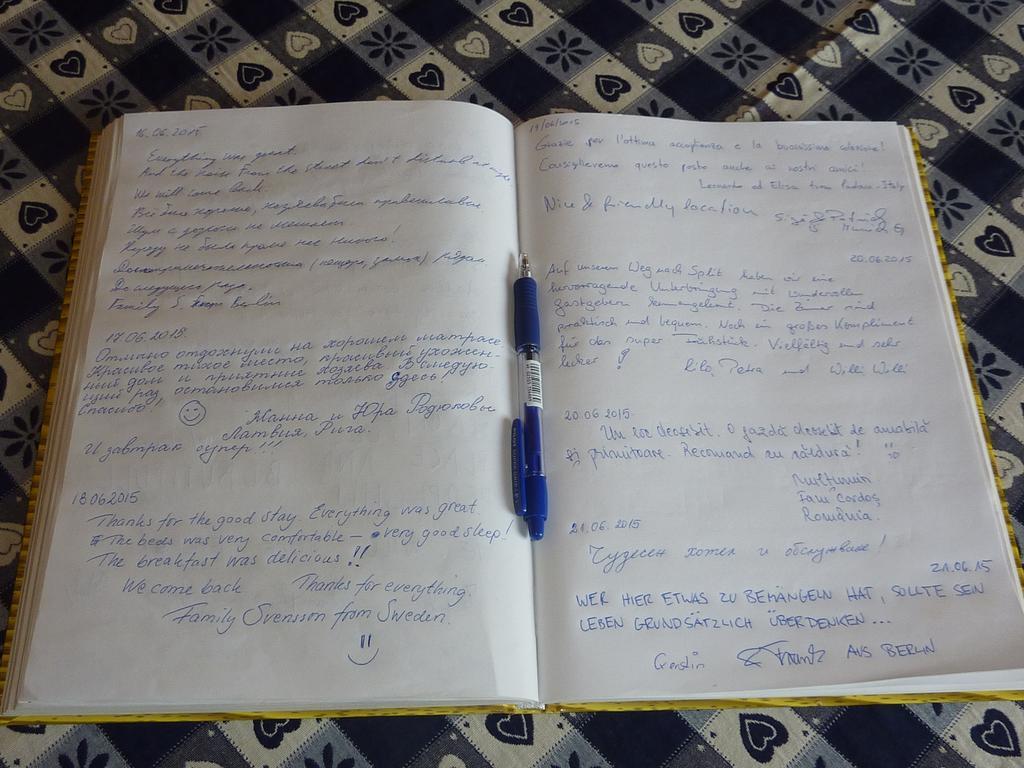 16.06.2015
Everything was great.
And the noise from the street don't disturb
We will come back.
Всё было хорошо,
Шум с дороги не мешает.
не было кроме нас никого!
До следующего раза.
Family S. from Berlin
17.06.2015.
Отлично отдохнули на хорошем матрасе.
Красивое тихое место, красивый ухожен-
ный дом и приятные хозяева. В следую-
щий раз, остановимся только здесь!
Спасибо!!
Жанна и Юра
Латвия, Рига.
И завтрак супер!!!
18062015
Thanks for the good stay. Everything was great.
The beds was very comfortable – very good sleep!
The breakfast was delicious!!
We come back Thanks for everything.
Family Svensson from Sweden.
19/06/2015
Grazie per l'ottima accoglienza e la buonissima colazione!
Consiglieremo questo posto anche ai nostri amici!
Leonardo ed Elisa from Padova - Italy
Nice & friendly location
20.06.2015
Auf unserem Weg nach Split haben wir eine
hervorragende Unterbringung mit wundervollen
gastgebern kennengelernt. Die Zimmer sind
praktisch und bequem. Noch ein großes Kompliment
für das super Frühstück. Vielfältig und sehr
lecker!
Petra und Willi
20.06 2015.
Un loc deosebit. O gazdă deosebit de amabilă
și primitoare. Recomand cu căldură!
Mulțumiri
Fam Cordoș
România.
21.06. 2015
Чудесен хотел и обслужване!
21.06.15
WER HIER ETWAS ZU BEMÄNGELN HAT, SOLLTE SEIN
LEBEN GRUNDSÄTZLICH ÜBERDENKEN...
Kerstin & Frank AUS BERLIN